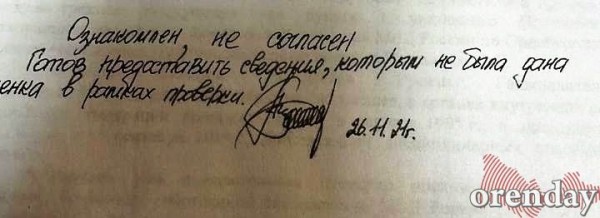 Ознакомлен, не согласен
Готов предоставить сведения, которым не была дана
енка в рамках проверки.
26.11.21г.
orenday